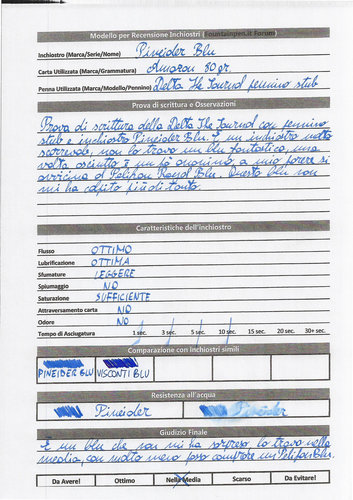 Modello per Recensione Inchiostri (Fountainpen.it Forum)
Inchiostro (Marca/Serie/Nome) Pineider Blu
Carta Utilizzata (Marca/Grammatura) Amazon 80 gr.
Penna Utilizzata (Marca/Modello/Pennino) Delta The Journal pennino stub
Prova di scrittura e Osservazioni
Prova di scrittura della Delta The Journal con pennino
stub e inchiostro Pineider Blu. È un inchiostro molto
scorrevole, non lo trovo un blu fantastico, una
volta asciutto è un po' anonimo, a mio parere si
avvicina al Pelikan Royal Blu. Questo blu non
mi ha colpito più di tanto.
Caratteristiche dell'inchiostro
Flusso OTTIMO
Lubrificazione OTTIMA
Sfumature LEGGERE
Spiumaggio NO
Saturazione SUFFICIENTE
Attraversamento carta NO
Odore NO
Tempo di Asciugatura 1 sec. 3 sec. 5 sec. 10 sec. 15 sec. 20 sec. 30+ sec.
Comparazione con inchiostri simili
PINEIDER BLU VISCONTI BLU
Resistenza all'acqua
Pineider Pineider
Giudizio Finale
È un blu che non mi ha sorpreso, lo trovo nella
media, con molto meno posso comprare un Pelikan Blu.
Da Avere! Ottimo Nella Media Scarso Da Evitare!